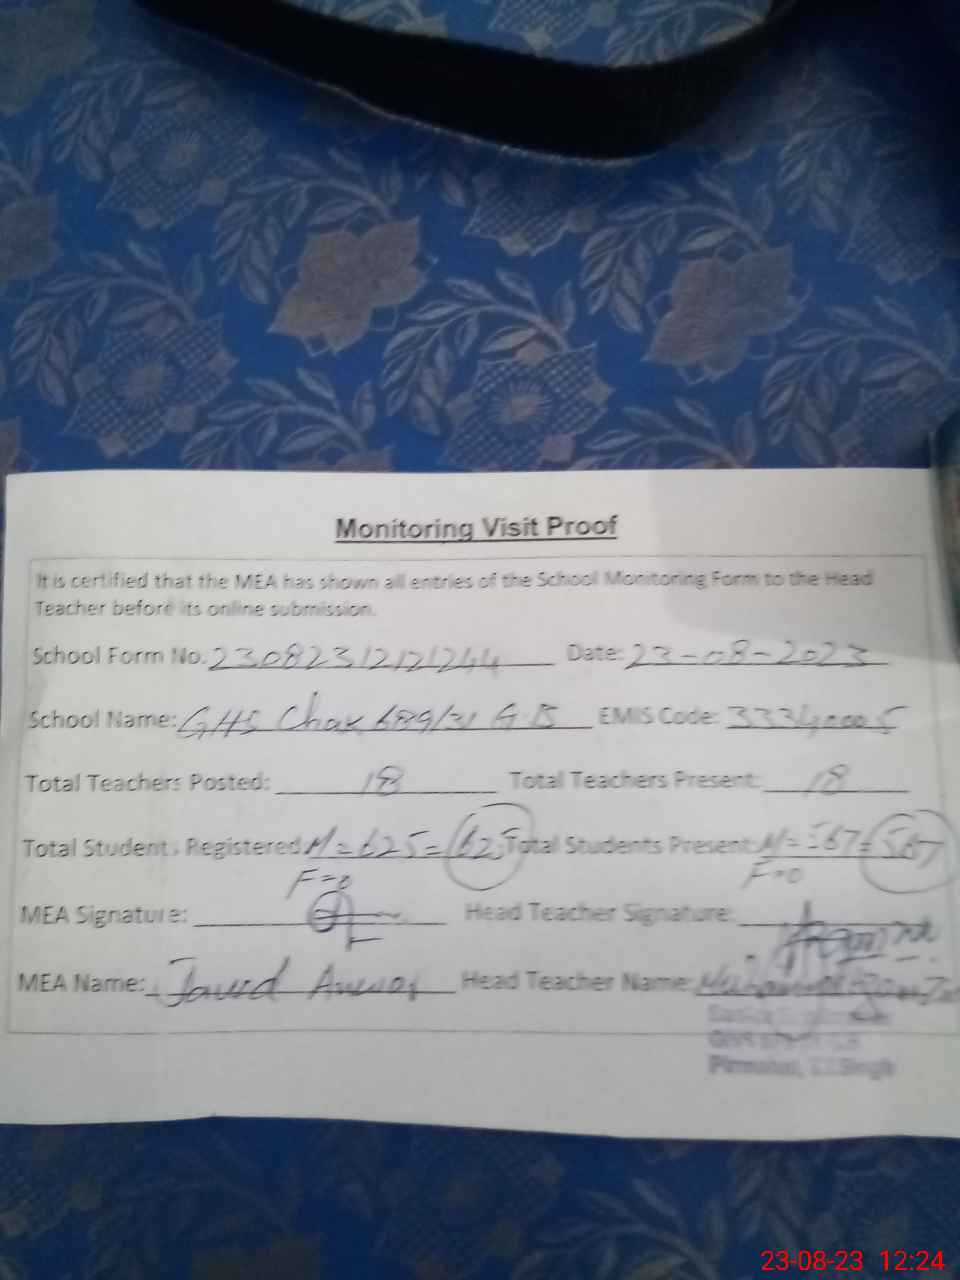 Monitoring Visit Proof
It is certified that the MEA has shown all entries of the School Monitoring Form to the Head
Teacher before its online submission.
School Form No. 23082312121244 Date: 23-08-2023
School Name: GHS Chak 689/31 GB EMIS Code:
Total Teachers Posted: 18 Total Teachers Present: 18
Total Students Registered: M=625=625 Total Students Present: M=567=567
F=0 F=0
MEA Signature: Head Teacher Signature:
MEA Name: Javed Anwar Head Teacher Name: Muhammad
Pirmahal, T.T.Singh
23-08-23 12:24